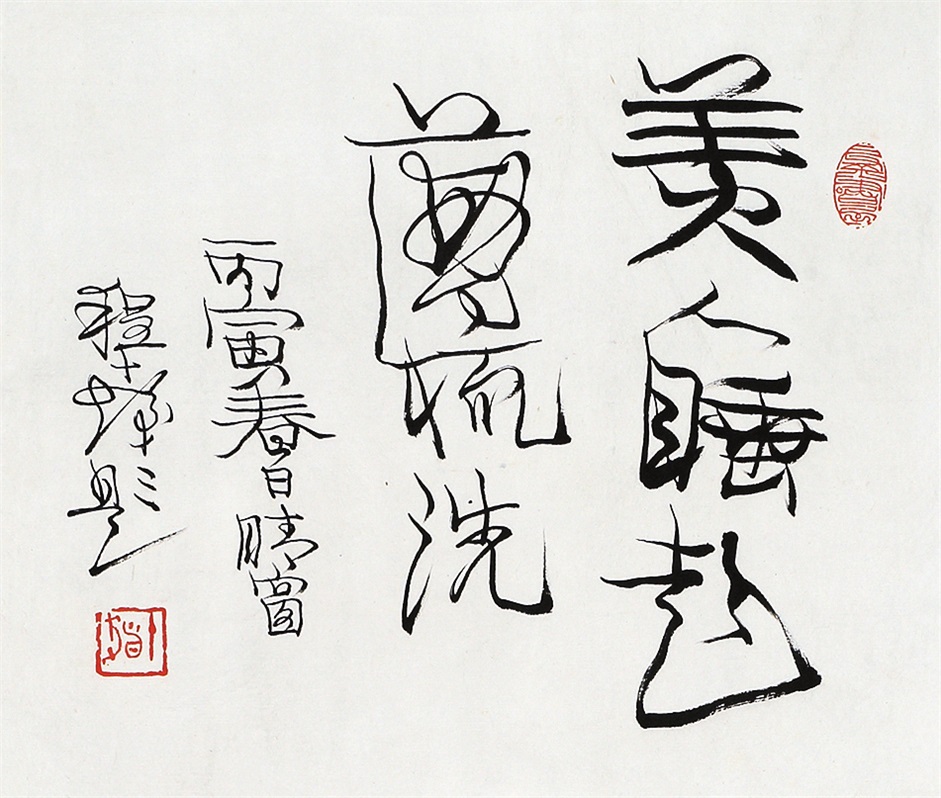 美人睡起
薄梳洗
丙寅春日晴窗
程十髮題